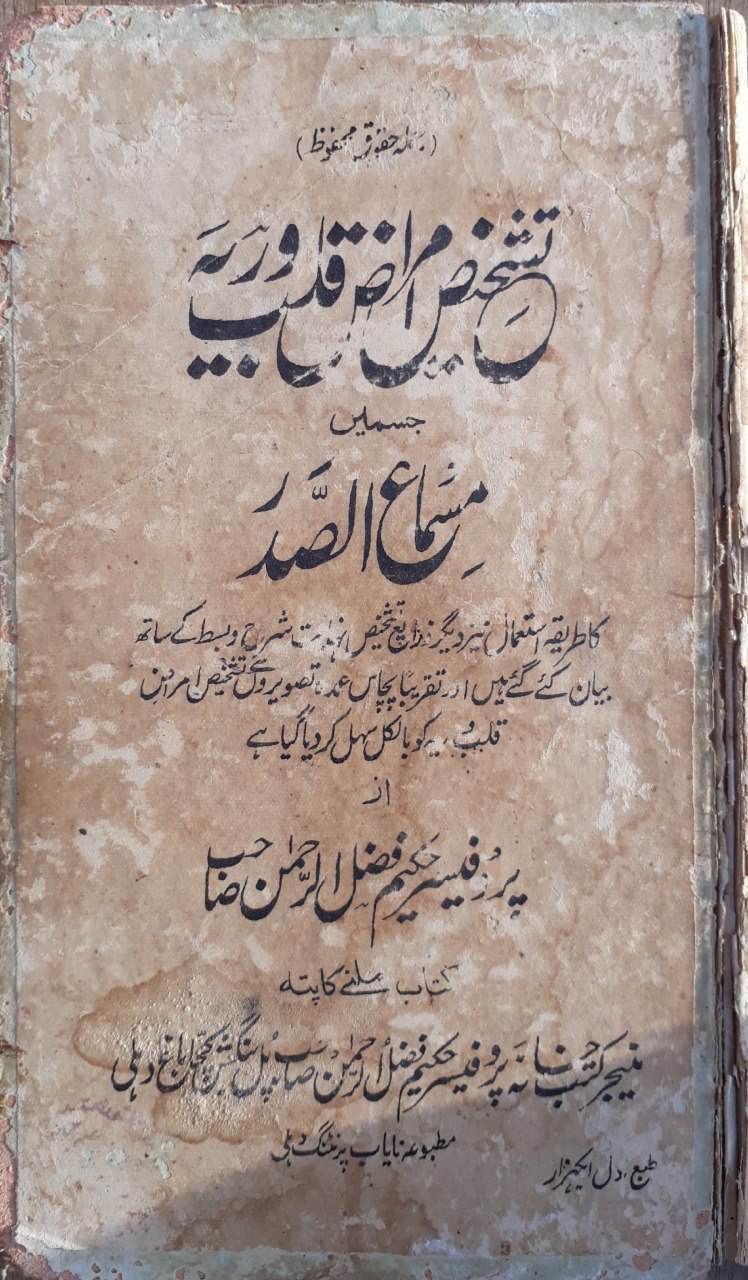 (جملہ حقوق محفوظ)
تشخیص امراض قلب وریہ
جسمیں
مسماع الصّدر
کا طریقہ استعمال نیز دیگر ذرایع تشخیص نہایت شرح و بسط کے ساتھ
بیان کئے گئے ہیں اور تقریباً پچاس عمدہ تصویروں سے تشخیص امراض
قلب وریہ کو بالکل سہل کردیا گیا ہے
از
پروفیسر حکیم فضل الرحمٰن صاحب
کتاب ملنے کا پتہ
منیجر کتب خانہ پروفیسر حکیم فضل الرحمٰن صاحب پل باغ دہلی
مطبوعہ نایاب پرنٹنگ دہلی
طبع اول ایکہزار